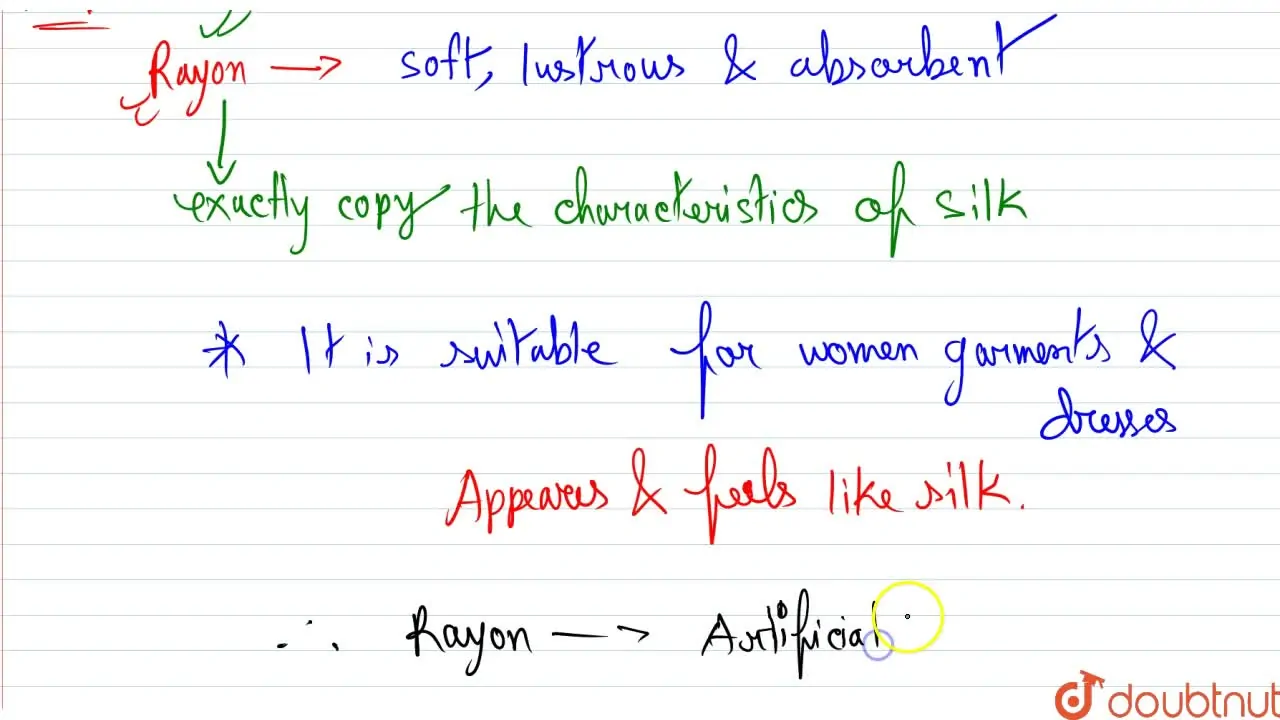 Rayon → soft, lustrous & absorbent
exactly copy the characteristics of silk
* It is suitable for women garments &
dresses
Appears & feels like silk.
∴ Rayon → Artificial
doubtnut